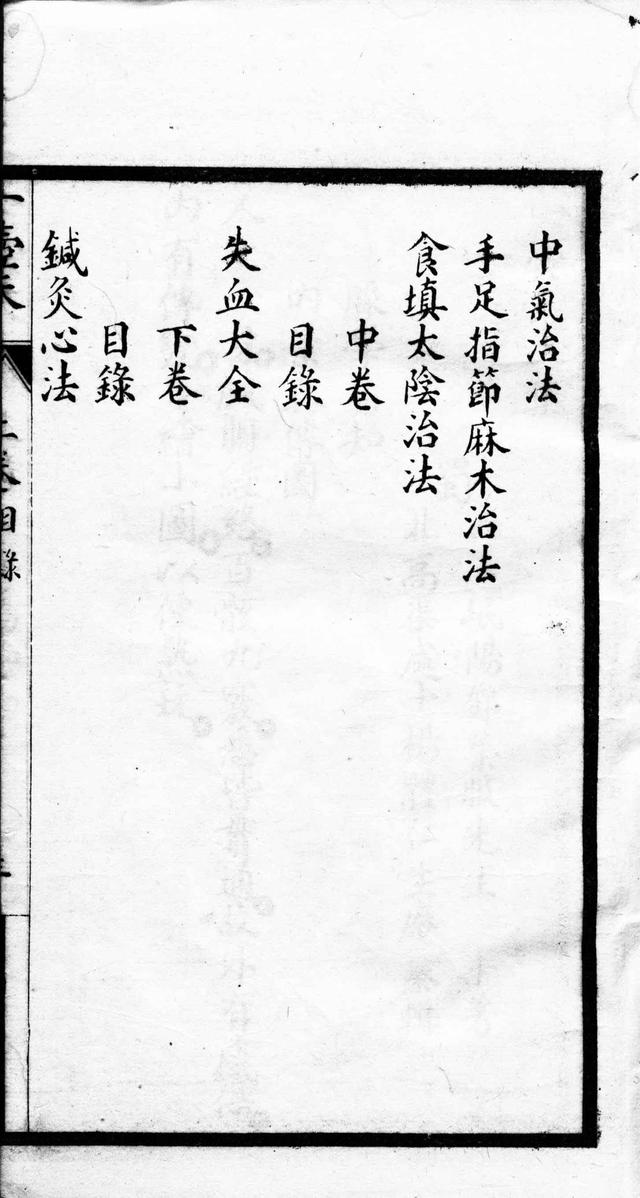 中氣治法
手足指節麻木治法
食填太陰治法
中卷
目錄
失血大全
下卷
目錄
鍼灸心法
一壺天
上卷目錄